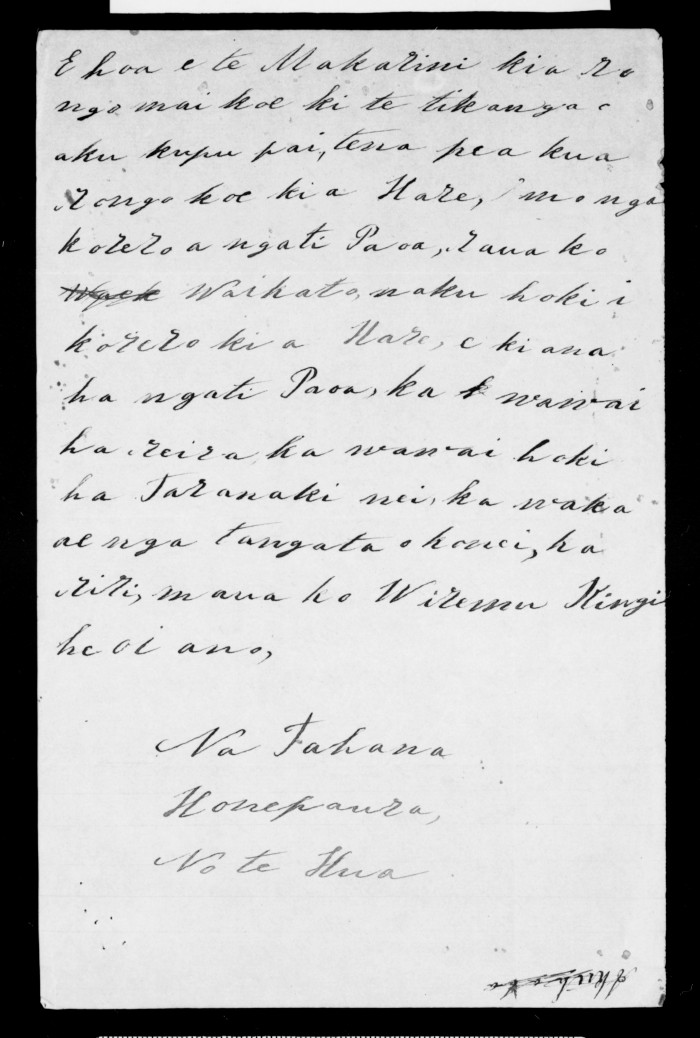 E hoa e te Makarini kia ro
ngo mai koe ki te tikanga o
aku kupu pai, tena pea kua
rongo koe ki a Hare, mo nga
korero a ngati Paoa, raua ko
Waikato, naku hoki i
korero ki a Hare, e ki ana
ha ngati Paoa, ka wawai
ka reira, ka wawai hoki
ha Taranaki nei, ka waka
ae nga tangata o konei, ka
riri, maua ko Wiremu Kingi
he oi ano,
Na Tahana
No te Hua